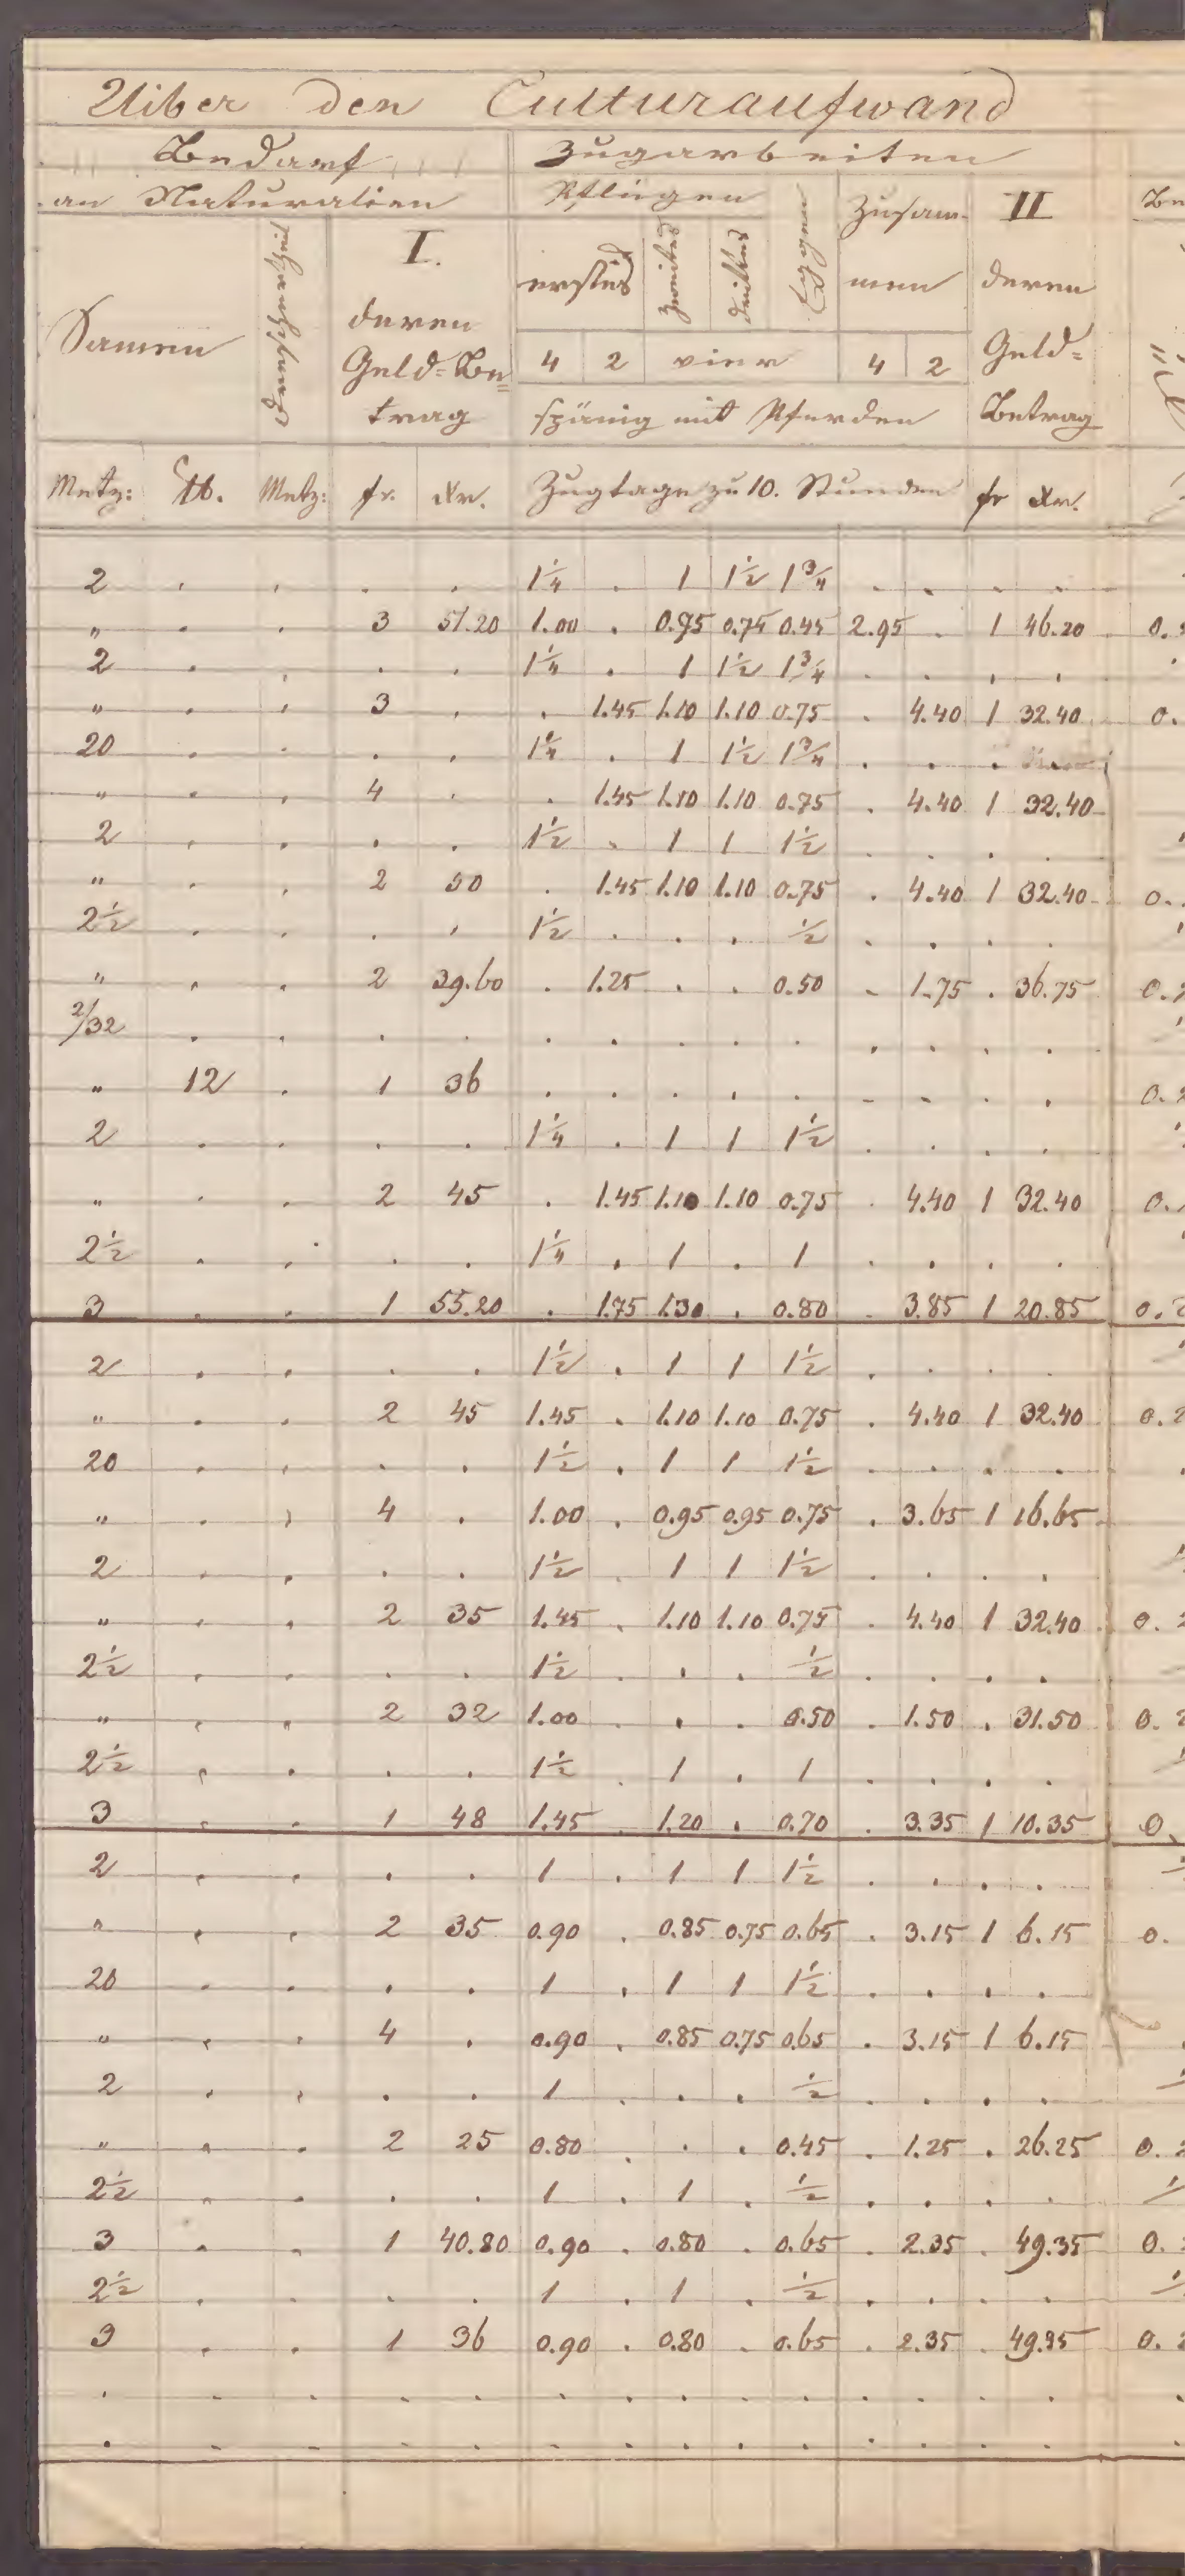 Uiber den Culturaufwand
Bedarf Zugarbeiten
an Naturalien Pflügen Eggen Zusam- II
Samen I. erstes zweites drittes men deren
deren Geld=
Geld=Be= 4 2 vier 4 2 Betrag
trag spänig mit Pferden
Metz: ℔. Metz: fr. Xr. Zugtage zu 10. Stunden fr Xr.
2 . . . . 1¼ . 1 1½ 1¾ . . . .
" . . 3 51.20 1.00 . 0.75 0.75 0.45 2.95 . 1 46.20
2 . . . . 1¼ . 1 1½ 1¾ . . . .
" . . 3 . . 1.45 1.10 1.10 0.75 . 4.40 1 32.40
20 . . . . 1¼ . 1 1½ 1¾ . . .
" . . 4 . . 1.45 1.10 1.10 0.75 . 4.40 1 32.40
2 . . . . 1½ . 1 1 1½ . . . .
" . . 2 50 . 1.45 1.10 1.10 0.75 . 4.40 1 32.40
2½ . . . . 1½ . . . ½ . . . .
" . . 2 39.60 . 1.25 . . 0.50 . 1.75 . 36.75
2/32 . . . . . . . . . . . . .
" 12 . 1 36 . . . . . . . . .
2 . . . . 1¼ . 1 1 1½ . . . .
" . . 2 45 . 1.45 1.10 1.10 0.75 . 4.40 1 32.40
2½ . . . . 1¼ . 1 . 1 . . . .
3 . . 1 55.20 . 1.75 1.30 . 0.80 . 3.85 1 20.85
2 . . . . 1½ . 1 1 1½ . . . .
" . . 2 45 1.45 . 1.10 1.10 0.75 . 4.40 1 32.40
20 . . . . 1½ . 1 1 1½ . . . .
" . . 4 . 1.00 . 0.95 0.95 0.75 . 3.65 1 16.65
2 . . . . 1½ . 1 1 1½ . . . .
" . . 2 35 1.45 . 1.10 1.10 0.75 . 4.40 1 32.40
2½ . . . . 1½ . . . ½ . . . .
" . . 2 32 1.00 . . . 0.50 . 1.50 . 31.50
2½ . . . . 1½ . 1 . 1 . . . .
3 . . 1 48 1.45 . 1.20 . 0.70 . 3.35 1 10.35
2 . . . . 1 . 1 1 1½ . . . .
" . . 2 35 0.90 . 0.85 0.75 0.65 . 3.15 1 6.15
20 . . . . 1 . 1 1 1½ . . . .
" . . 4 . 0.90 . 0.85 0.75 0.65 . 3.15 1 6.15
2 . . . . 1 . . . ½ . . . .
" . . 2 25 0.80 . . . 0.45 . 1.25 . 26.25
2½ . . . . 1 . 1 . ½ . . . .
3 . . 1 40.80 0.90 . 0.80 . 0.65 . 2.35 . 49.35
2½ . . . . 1 . 1 . ½ . . . .
3 . . 1 36 0.90 . 0.80 . 0.65 . 2.35 . 49.35
. . . . . . . . . . . . . .
. . . . . . . . . . . . . .